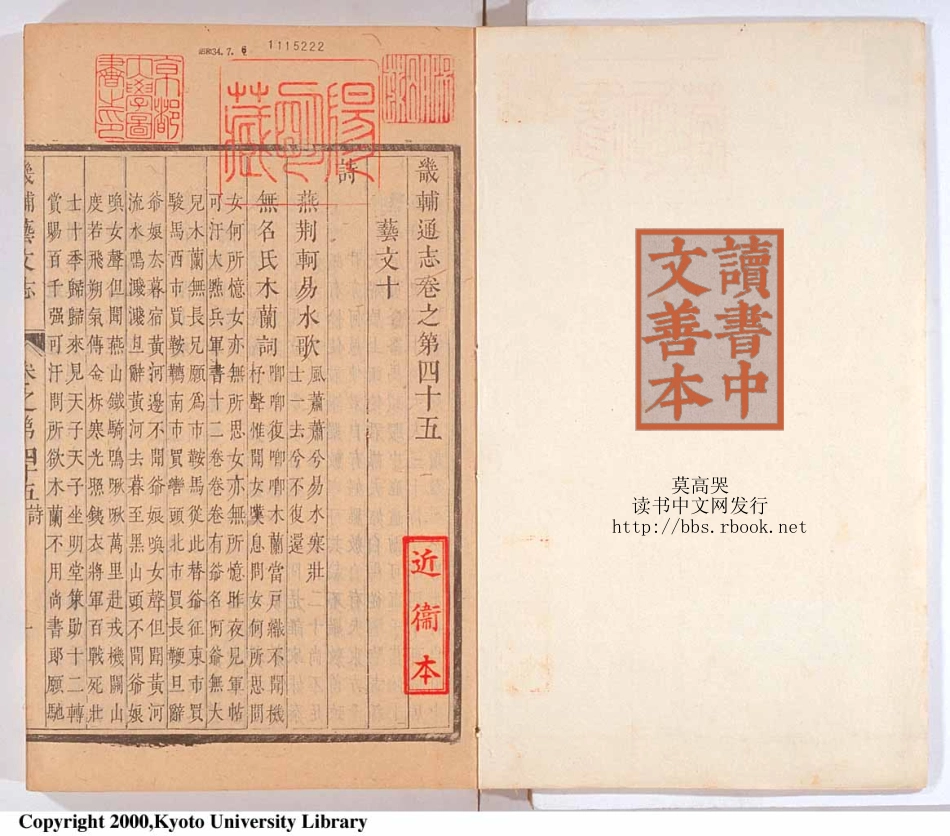 昭和34.7.6
1115222
京都
大學圖
書之印
陽明藏
近衞本
畿輔通志卷之第四十五
藝文十
詩
燕荆軻易水歌
風蕭蕭兮易水寒壯
士一去兮不復還
無名氏木蘭詞
唧唧復唧唧木蘭當戶織不聞機
杼聲惟聞女嘆息問女何所思問
女何所憶女亦無所思女亦無所憶昨夜見軍帖
可汗大點兵軍書十二卷卷卷有爺名阿爺無大
兒木蘭無長兄願爲市鞍馬從此替爺征東市買
駿馬西市買鞍韉南市買轡頭北市買長鞭旦辭
爺娘去暮宿黃河邊不聞爺娘喚女聲但聞黃河
流水鳴濺濺旦辭黃河去暮至黑山頭不聞爺娘
喚女聲但聞燕山鐵騎鳴啾啾萬里赴戎機關山
度若飛朔氣傳金柝寒光照銕衣將軍百戰死壯
士十季歸歸來見天子天子坐明堂策勛十二轉
賞賜百千强可汗問所欲木蘭不用尚書郎願馳
畿輔藝文志 卷之第四十五 詩 一
讀書中
文善本
莫高哭
读书中文网发行
http://bbs.rbook.net
Copyright 2000,Kyoto University Library